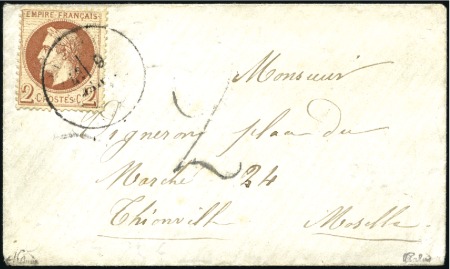 EMPIRE FRANÇAIS
2 POSTES C. 2
9
Monsieur
Vigneron place du
Marché 24
Thionville Moselle